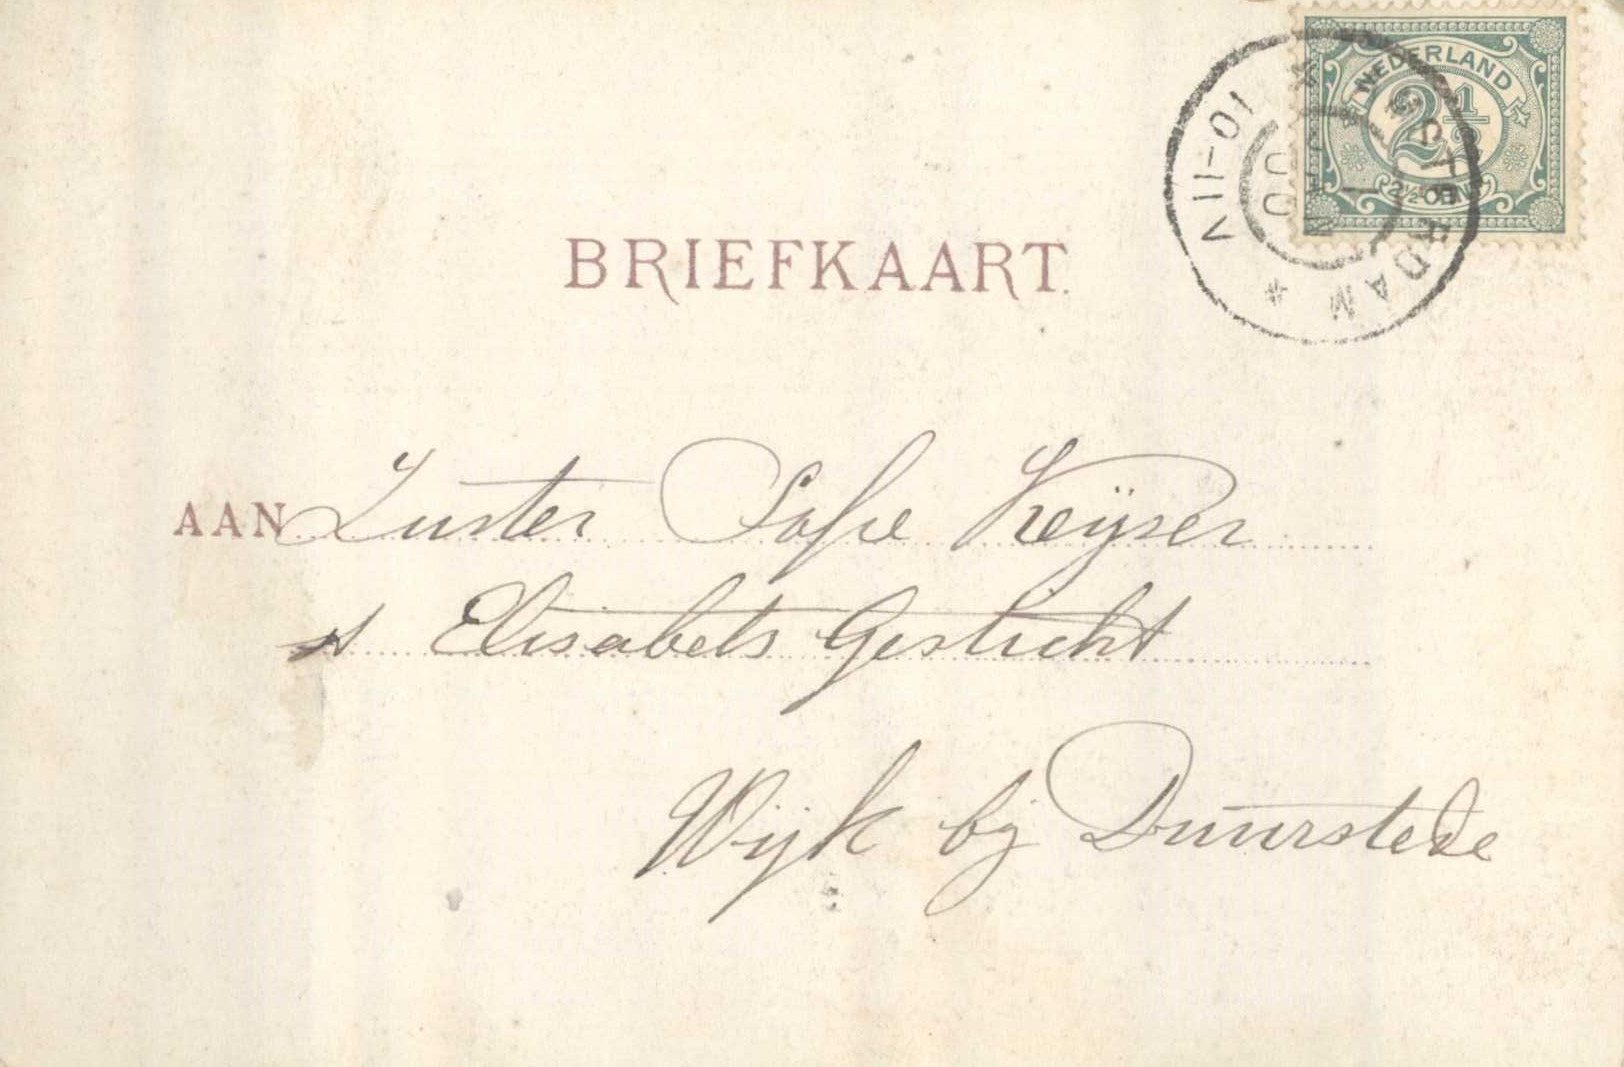 NEDERLAND
2½
2½ CENT
AMSTERDAM *
10-11V
BRIEFKAART.
AAN Zuster Sofie Keijser
st Elisabets Gesticht
Wijk bij Duurstede